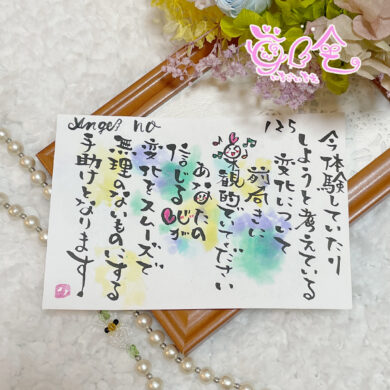 Angel no 125
今体験していたり
しようと考えている
変化について
前向きに
楽観的でいてください
あなたの
信じる心が
変化をスムーズで
無理のないものにする
手助けとなります